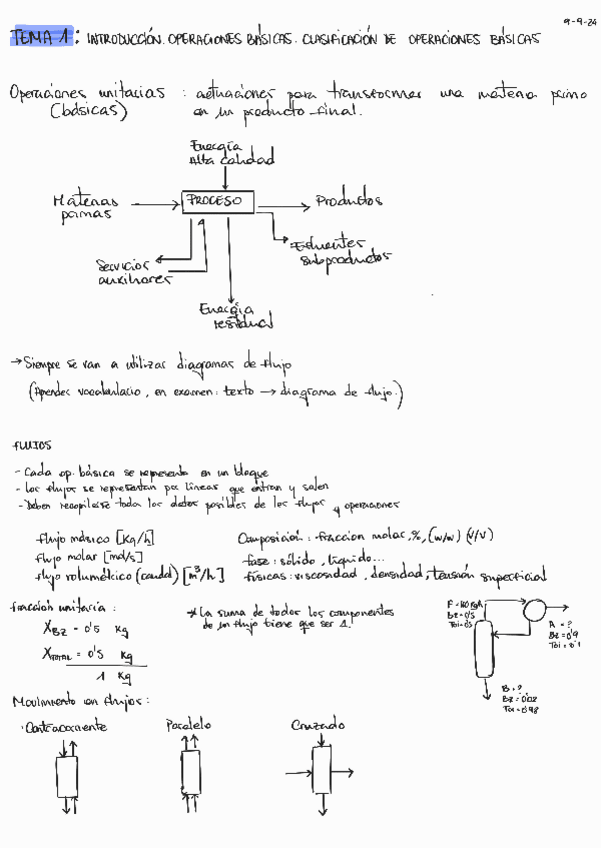 9-9-24
TEMA 1: INTRODUCCIÓN. OPERACIONES BÁSICAS. CLASIFICACIÓN DE OPERACIONES BÁSICAS
Operaciones unitarias : actuaciones para transformar una materia prima
(básicas) en un producto final.
Energía
Alta calidad
Materias
primas
PROCESO
Productos
Efluentes
Subproductos
Servicios
auxiliares
Energía
residual
→ Siempre se van a utilizar diagramas de flujo
(Aprender vocabulario, en examen: texto → diagrama de flujo.)
FLUJOS
- Cada op. básica se representa en un bloque
- Los flujos se representan por líneas que entran y salen
- Deben recopilarse todos los datos posibles de los flujos y operaciones
flujo másico [Kg/h]
flujo molar [mol/s]
flujo volumétrico (caudal) [m³/h]
Composición : fracción molar, %, (w/w) (v/v)
fase : sólido, líquido...
físicas : viscosidad, densidad, tensión superficial
fracción unitaria :
X_BZ = 0'5 Kg
= 0'5 Kg
1 Kg
* La suma de todos los componentes
de un flujo tiene que ser 1.
Bz = 0'5
Tol = 0'5
A = ?
Bz = 0'9
Tol = 0'1
B = ?
Bz = 0'02
Tol = 0'98
Movimiento en flujos :
· Contracorriente
Paralelo
Cruzado